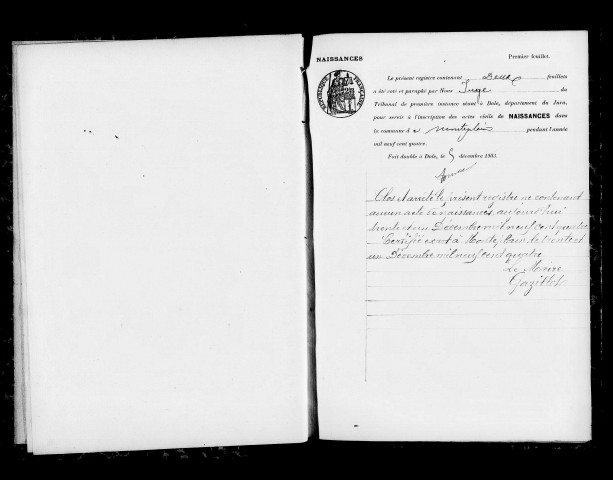 NAISSANCES
Premier feuillet.
RÉPUBLIQUE FRANÇAISE
Le présent registre contenant Deux feuillets
a été coté et paraphé par Nous Juge du
Tribunal de première instance séant à Dole, département du Jura,
pour servir à l'inscription des actes civils de NAISSANCES dans
la commune de Monteplain pendant l'année
mil neuf cent quatre.
Fait double à Dole, le 5 décembre 1903.
Clos et arrêté le présent registre ne contenant
aucun acte de naissances, aujourd'hui
trente et un Décembre mil neuf cent quatre
Certifié exact à Monteplain, le trente et
un Décembre mil neuf cent quatre
Le Maire